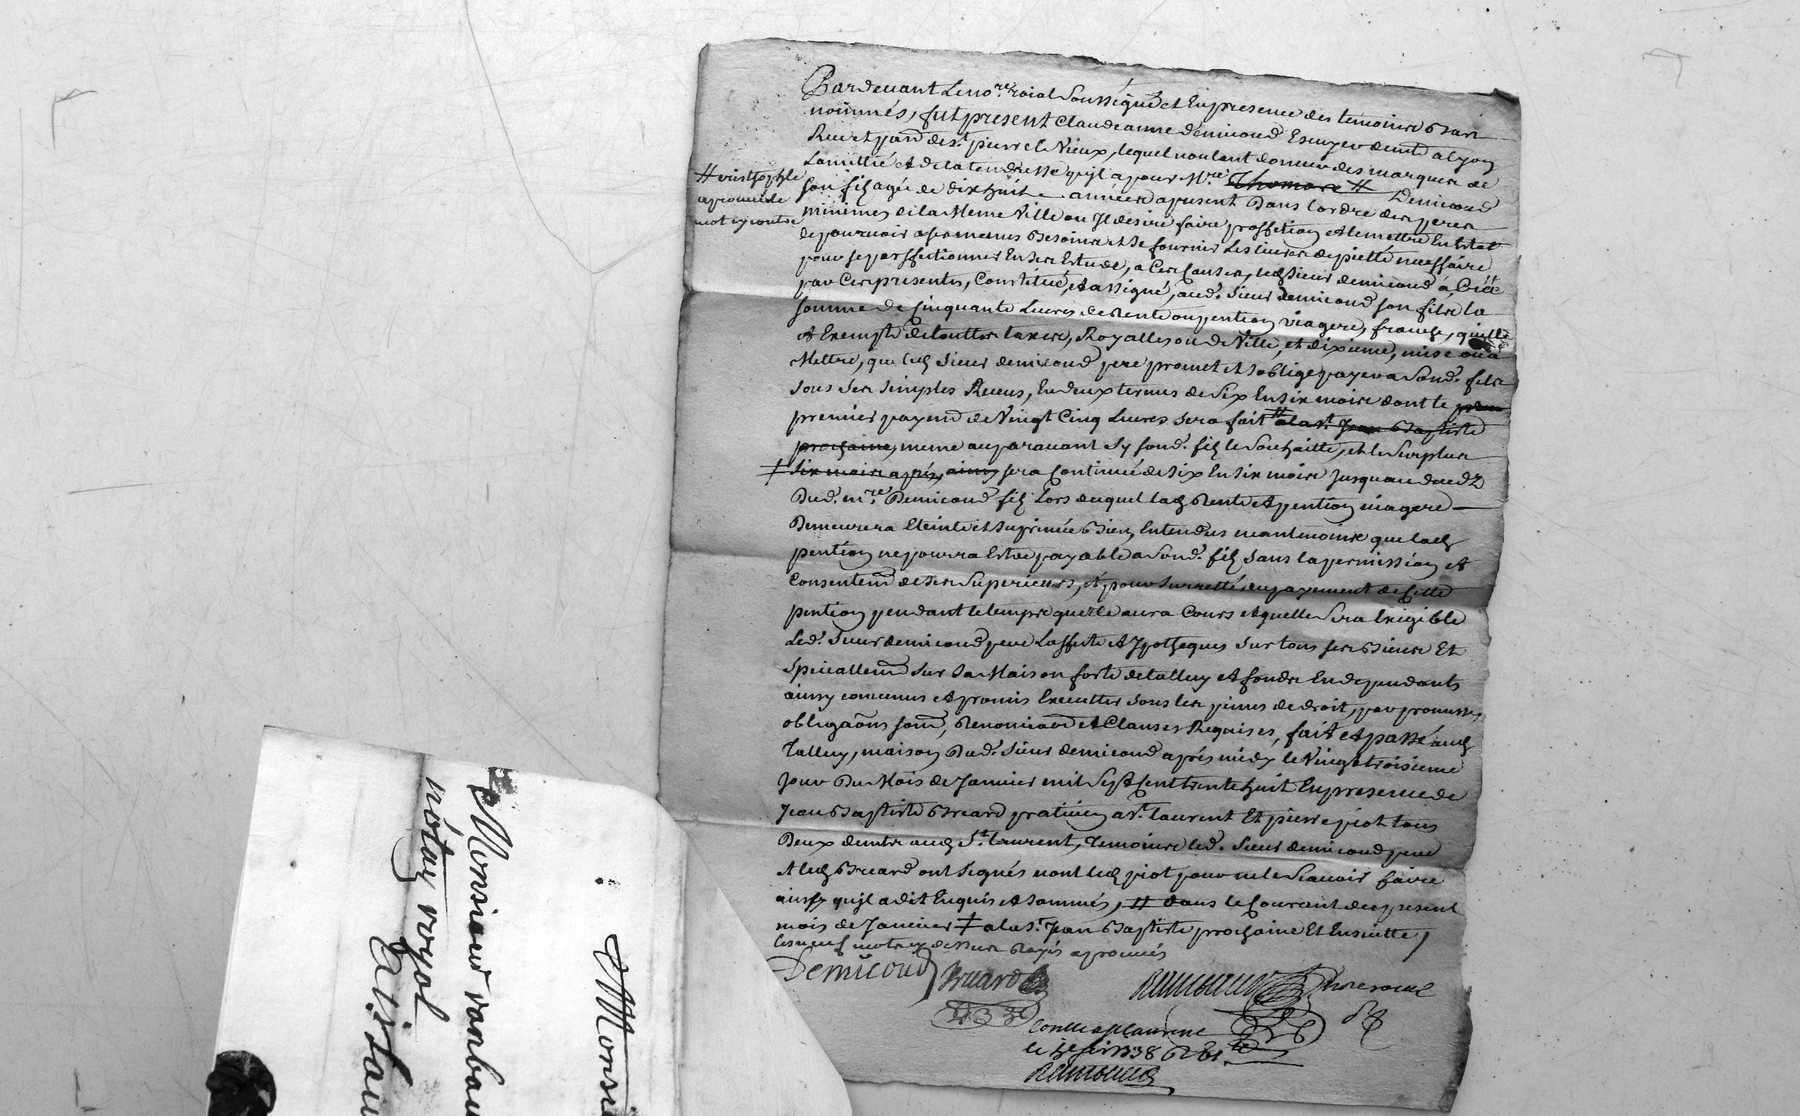 Pardevant le no.re roial soussigné et en presence des temoins bas
nommés, fut present Claude anne Demicoud Escuyer demt a lyon
Rue et parr. de st. pierre le Vieux, lequel voulant donner des marques de
Lamittié et de la tendresse qu'jl a pour Mre Thomas # Demicoud
# cristhophle
aprouvé le
mot cy contre
son filz agée de dix huit années a present Dans lordre des peres
minimes de la Meme Ville ou Jl desire faire proffetion et le mettre En Estat
de pourvoir a ses menus Besoins et se fournir les livres de pietté neessaire
pour se parffectionner En ses Estude, a Ces Causes, ledt sieur demicoud à Créé
par Ces presentes, Constitué, et assigné, aud. sieur demicoud son fils la
somme de Cinquante Livres de Rente ou pention viagere, franche, quitte
et Exempte de touttes taxes, Royalles ou de Ville, et dixieme, mise ou a
Mettre, que led sieur demicoud pere promet et s'oblige payer a Sond. fils
sous ses simples Receus, En deux termes de Six En six mois dont le
premier payemt de Vingt Cinq Livres sera fait # a la st. Jean Baptiste
prochaine, meme auparavant sy sond. filz le Souhaitte, et le Surplus
‡ six mois apres, ainsy sera Continué de six En six mois Jusqu'au deceds
Dud. mre Demicoud filz Lors duquel lad Rente et pention viagere
Demeurera Eteinte et suprimée Bien Entendus neantmoins que lad
pention ne pourra Estre payable a Sond. filz sans la permission et
Consentemt de ses Superieurs, et pour surretté du payement de Cette
pention pendant le temps quelle aura Cours et quelle sera Exigible
Led. sieur demicoud pere Laffecte et Jpotheques sur tous ses Biens Et
speciallemt sur sa Maison forte de talluy et fonds En dependants
ainsy convenus et promis Executter sous les peines de droit, par promesses,
obligaôns soum, Renonciaôn et Clauses Requises, fait et passé aud
Talluy, maison Dud. sieur demicoud aprés midy le Vingt troisieme
Jour Du Mois de Janvier mil Sept Cent trente huit En presence de
Jean Baptiste Breard praticien a st. laurent Et pierre piot tous
Deux demts aud St. laurent, Temoins led. sieur demicoud pere
et led Breard ont signés non led piot pour ne le Scavoir faire
ainsy qu'jl a dit Enquis et sommés, # dans le Courant du present
mois de Janvier ‡ a la st. Jean Baptiste prochaine Et Ensuitte /
les neuf mots cy dessus Rayés aprouvés
Demicoud Breard
Conlle a st Laurent
Monsieur
Monsieur
notay royal